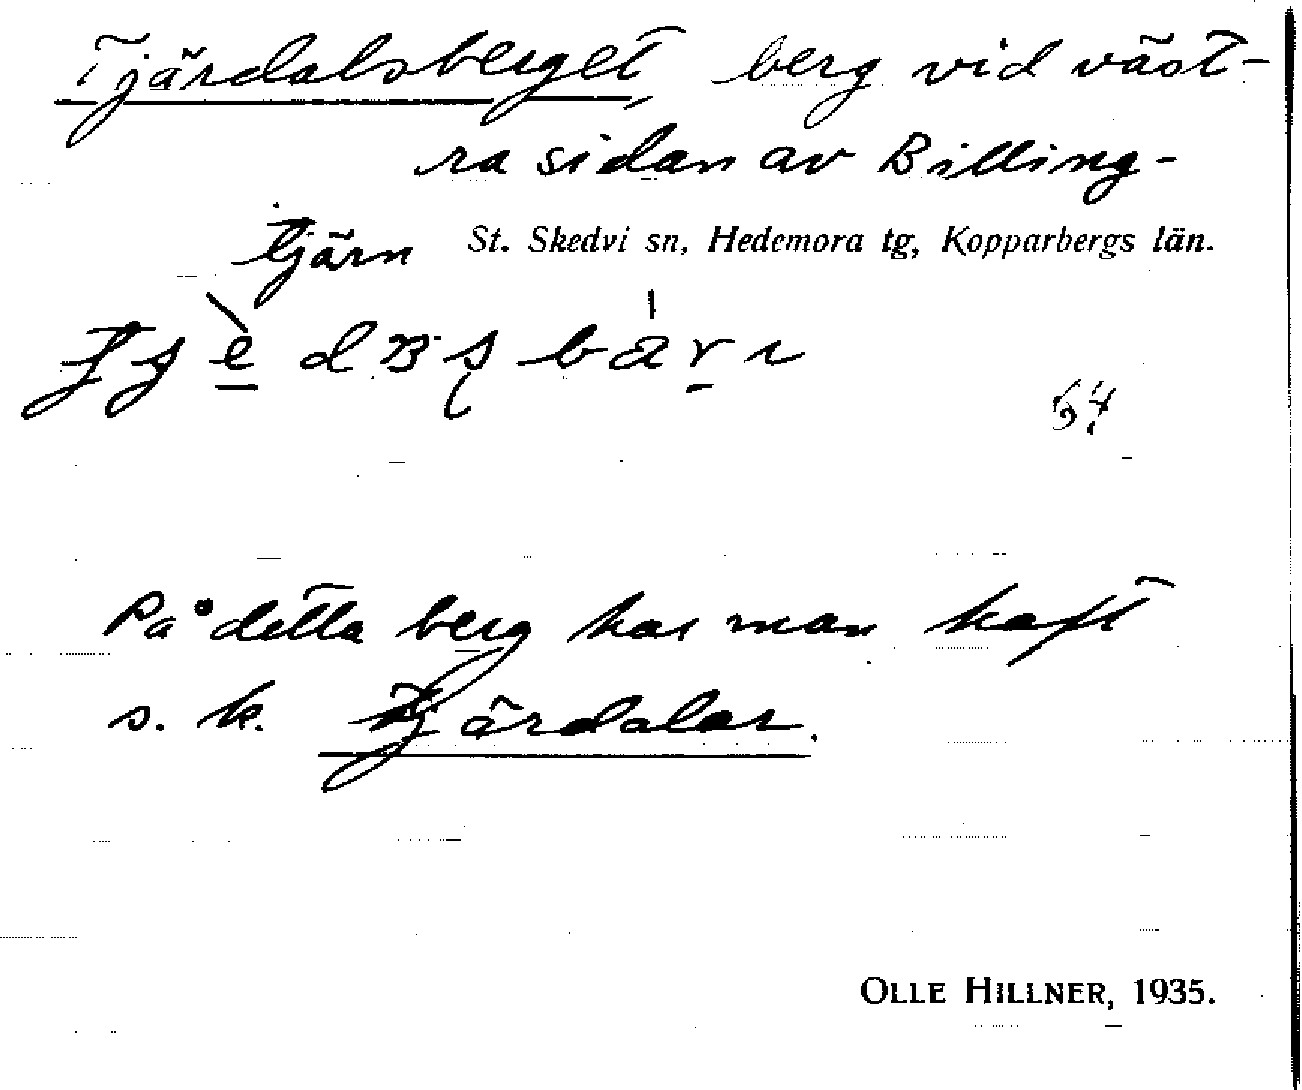 Tjärdalsberget, berg vid väst-
ra sidan av Billing-
tjärn
St. Skedvi sn, Hedemora tg, Kopparbergs län.
64
På detta berg har man haft
s. k. Tjärdalar.
OLLE HILLNER, 1935.